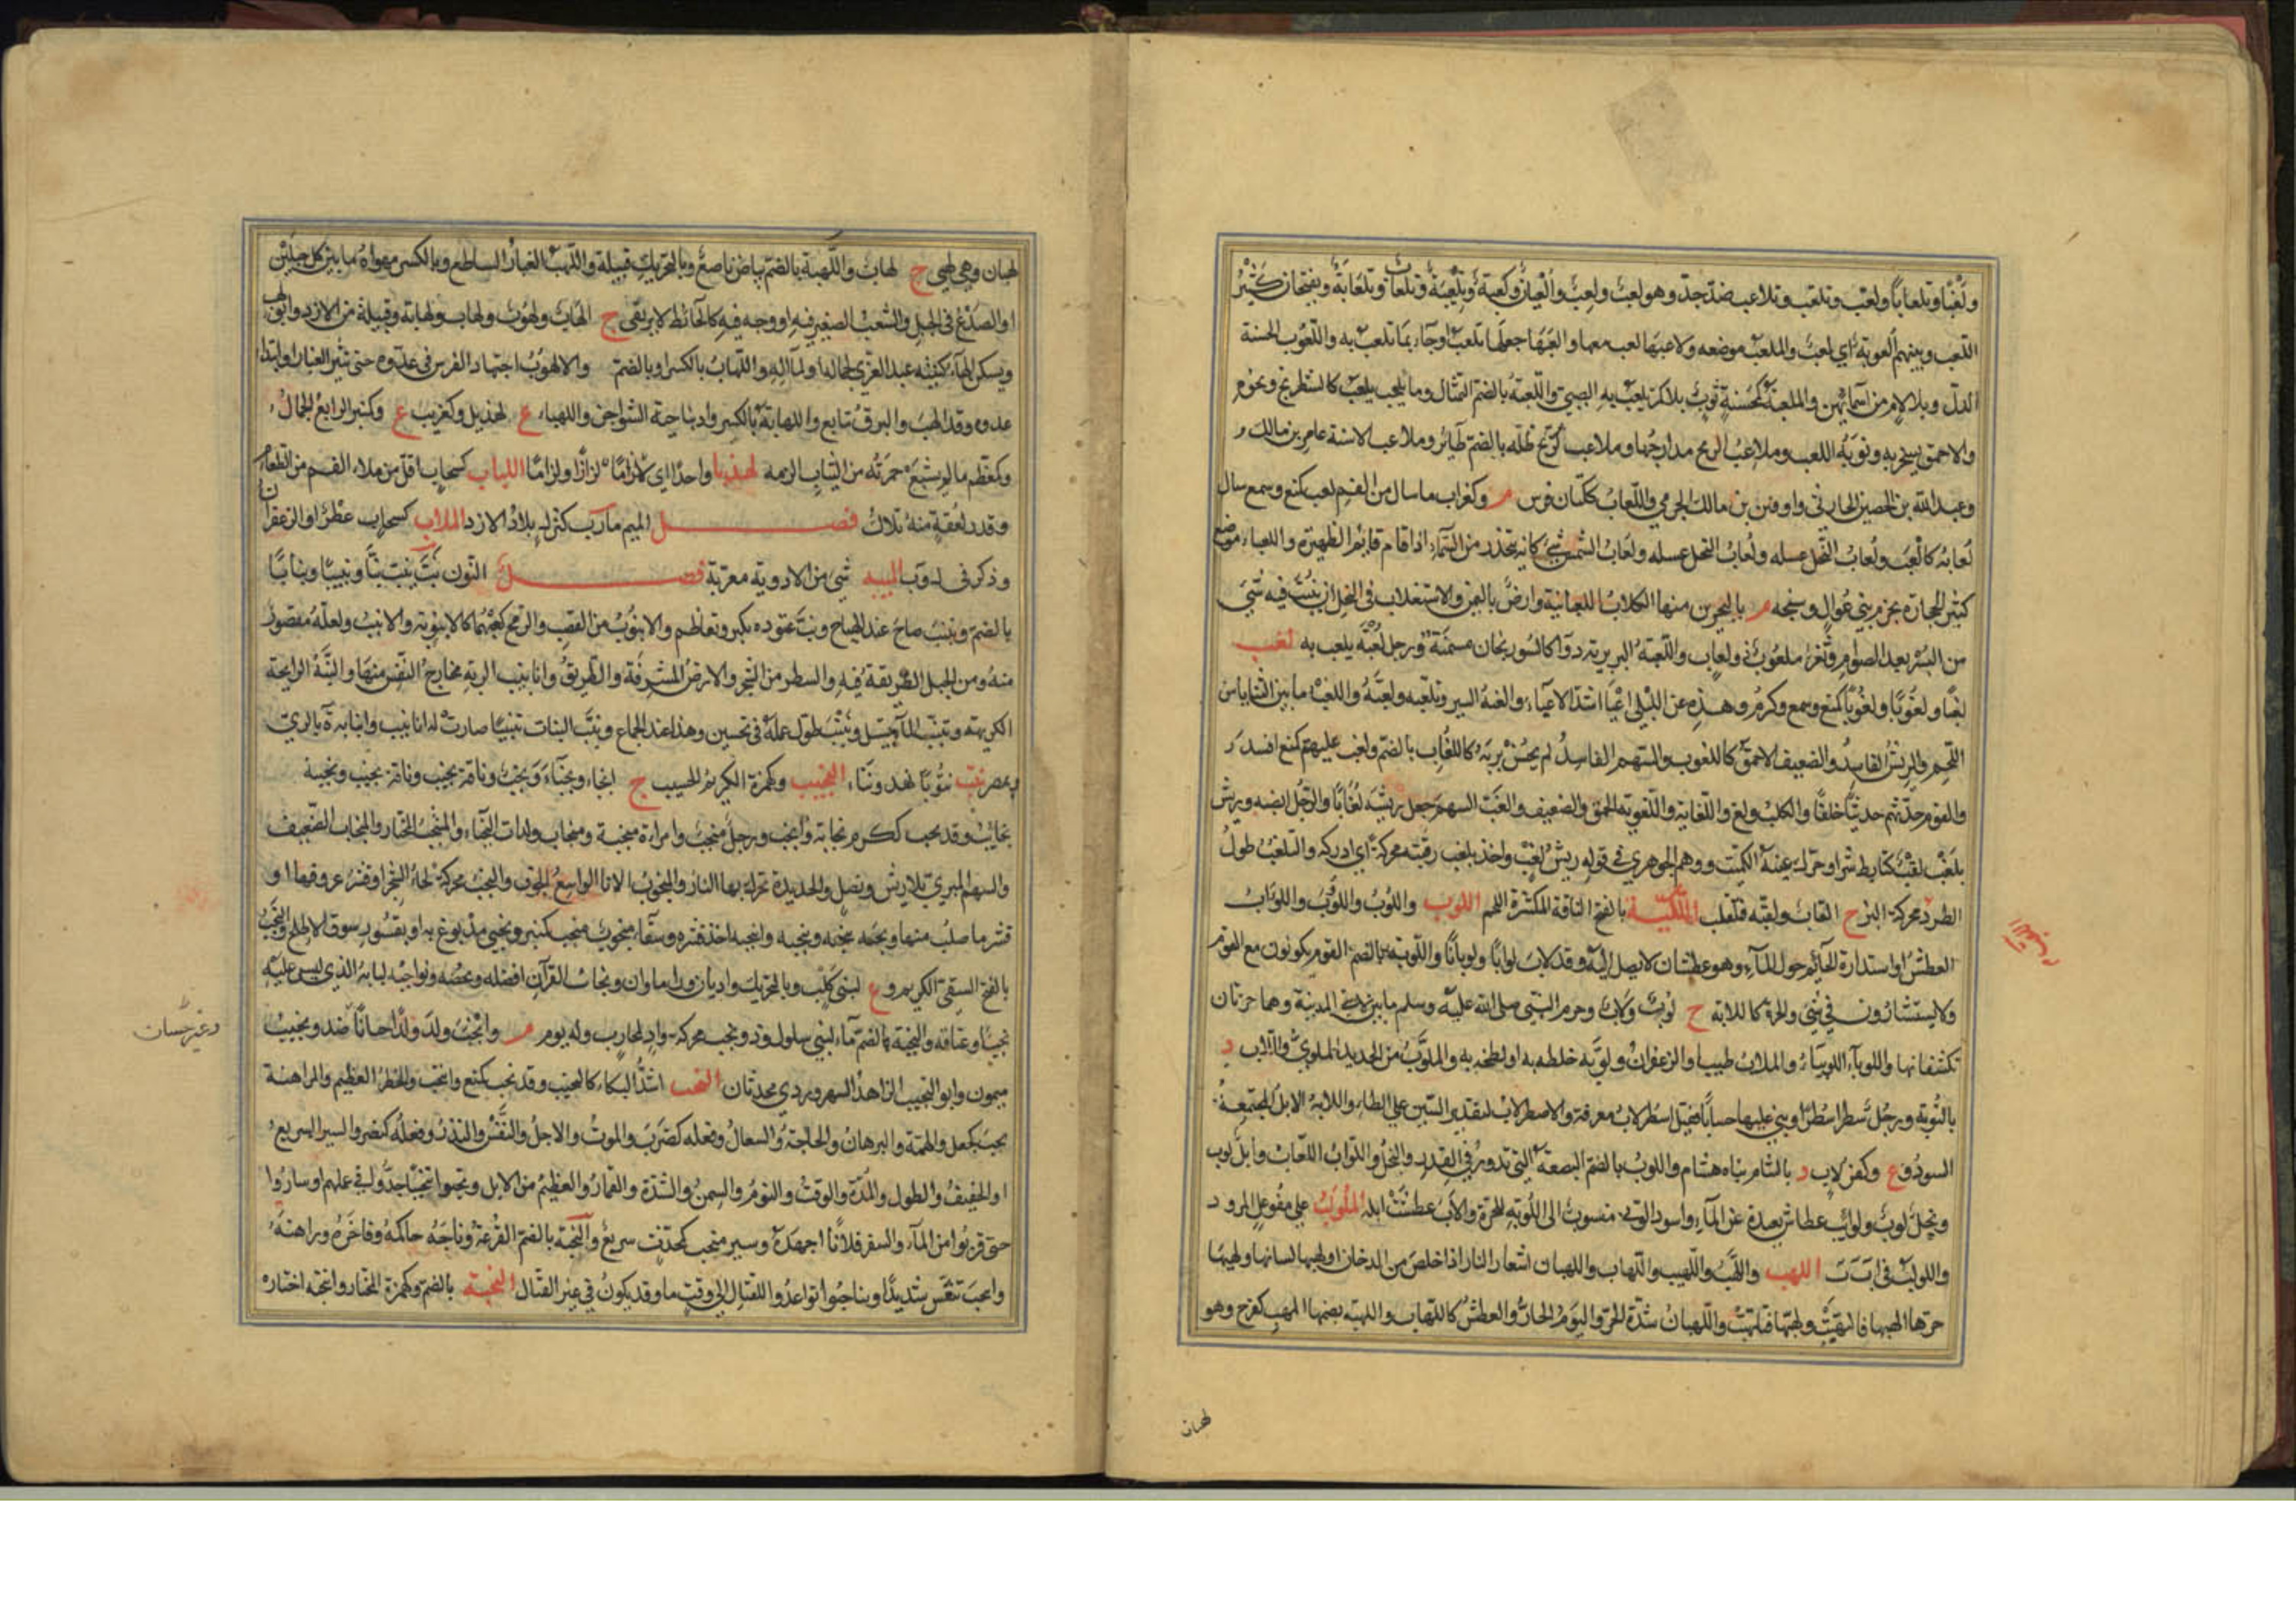 ولعبا وتلعابا ولعب وتلعب وتلاعب ضد جد وهو لعب ولعب والعبان وكعبة وتلعيبة وتلعاب وتلعابة وبفتحان كثير
اللعب وبينهم ألعوبة أي لعب والملعب موضعه ولاعبها لعب معها والعبها جعلها تلعب أو جاء بما تلعب به واللعوب الحسنة
الدل وبلا لام من أسمائهن والملعبة كمحسنة ثوب بلا كم يلعب به الصبي واللعبة بالضم التمثال وما يلعب به كالشطرنج ونحوه
والاحمق يسخر به ونوبة اللعب وملاعب الريح مدارجها وملاعب ظله بالضم طائر وملاعب الاسنة عامر بن مالك و
وعبد الله بن الحصين الحارثي واوس بن مالك الجرمي واللعاب ككتان فرس م وكغراب ما سال من الفم لعب كمنع وسمع سال
لعابه كالعب ولعاب النحل عسله ولعاب الشمس شيء كانه ينحدر من السماء اذا قام قائم الظهيرة واللعباء موضع
كثير الحجارة بحزم بني عوال وسبخة م بالبحرين منها الكلاب اللعبانية وارض باليمن والاستلعاب في النخل ان ينبت فيه شيء
من البسر بعد الصرام وثغر ملعوب ذو لعاب واللعبة البربرية دواء كالسورنجان مسمنة ورجل لعبة يلعب به لغب
لغبا ولغوبا ولغوبا كمنع وسمع وكرم وهذه عن اللبلي اعيا اشد الاعياء والغبه السير وتلغبه ولغبه واللغب ما بين الثنايا من
اللحم والريش الفاسد والضعيف الاحمق كاللغوب والسهم الفاسد لم يحسن بريه كاللغاب بالضم ولغب عليهم كمنع افسد و
والقوم حدثهم حديثا خلفا والكلب ولغ واللغابة واللغوبة الحمق والضعيف والغب السهم جعل ريشه لغابا والرجل انصبه وريش
بلغب لقب كتأبط شرا وحرك عينه الكميت ووهم الجوهري في قوله ريش لغب واخذ بلغب رقبته محركة أي ادركه والتلغب طول
الطرد محركة النبز ج القاب ولقبه فتلقب الملكبة بالفتح الناقة المكتنزة اللحم اللوب واللوب واللؤوب واللواب
العطش او استدارة الحائم حول الماء وهو عطشان لا يصل اليه وقد لاب لوابا ولوبانا واللوبة بالضم القوم يكونون مع القوم
ولا يستشارون في شيء والحرة كاللابة ج لوب ولاب وحرم النبي صلى الله عليه وسلم ما بين لابتي المدينة وهما حرتان
تكتنفانها واللوباء اللوبياء والملاب طيب او الزعفران ولوبه خلطه به او لطخه به والملوب من الحديد الملوي واللاب د
بالنوبة ورجل سطر اسطرا وبنى عليها حسابا فقيل اسطرلاب معرفة والاصطرلاب لتقدم السين على الطاء واللابة الابل المجتمعة
السود و ع وكفن لاب د بالشام بناه هشام واللوب بالضم البضعة التي تدور في القدر والنحل واللواب اللعاب وابل لوب
ونخل لوب ولوائب عطاش بعيدة عن الماء واسود لوبي منسوب الى اللوبة للحرة والاب عطشت ابله الملوب على مفوعل المرود
واللولب في ا ب ب اللهب واللهب واللهيب واللهاب واللهبان اشتعال النار اذا خلص من الدخان او لهبها لسانها ولهيبها
حرها الهبها فالتهبت ولهبها فتلهبت واللهبان شدة الحر واليوم الحار والعطش كاللهاب واللهبة بضمهما لهب كفرح وهو
لهبان
لهبان وهي لهبى ج لهاب واللهبة بالضم بياض ناصع وبالتحريك قبيلة واللهب الغبار الساطع وبالكسر مهواة ما بين كل جبلين
او الصدع في الجبل والشعب الصغير فيه او وجه فيه كالحائط لا يرتقى ج الهاب ولهوب ولهاب ولهابة وقبيلة من الازد وابو لهب
ويسكن الهاء كنية عبد العزى لجماله أو لماله واللهاب بالكسر او بالضم والالهوب اجتهاد الفرس في عدوه حتى يثير الغبار او ابتداء
عدوه وقد الهب والبرق تتابع واللهابة بالكسر واد بناحية الشواجن واللهباء ع لهذيل وكغريب ع وكمنبر الرائع الجمال
وكمعظم ما لم يشبع حمرته من الثياب الزمه لهذبا واحدا اي لزازا ولزاما اللياب كسحاب اقل من ملء الفم من الطعام
وقدر لعقة منه تلاك فصل الميم مأرب كمنزل بلاد الازد الملاب كسحاب عطر او الزعفران
وذكر في ل و ب الميبه شيء من الادوية معربة فصل النون نب ينب نبا ونبيبا ونبابا
بالضم ونبنب صاح عند الهياج ونب عتوده تكبر وتعاظم والانبوب من القصب والرمح كعبهما كالانبوبة والانبب ولعله مقصور
منه ومن الجبل الطريقة فيه والسطر من الشجر والارض المشرفة والطريق وانابيب الرية مخارج النفس منها والنبة الرائحة
الكريهة وتنبب الماء تسيل ونبنب طول عمله في تحسين وهذا عند الجماع ونبب النبات تنبيبا صارت له انابيب وانبابة ة بالري
ومصر نتب نتوبا نهد ونتاء النجيب وكهمزة الكريم الحسيب ج انجاب ونجباء ونجب وناقة نجيب وناقة نجيب ونجيبة
نجائب وقد نجب ككرم نجابة وانجب ورجل منجب وامراة منجبة ومنجاب ولدت النجباء والمنتجب المختار والمنجاب الضعيف
والسهم المبري بلا ريش ونصل والحديدة تحرك بها النار والمنجوب الاناء الواسع الجوف والنجب محركة لحاء الشجر او قشر عروقها او
قشر ما صلب منها ونجبه ينجبه وينجبه وانتجبه اخذ قشره وسقاء منجوب ومنجب كمنبر ونجبي مدبوغ به او بقشور سوق الطلح والنجب
بالفتح السخي الكريم و ع لبني كلب وبالتحريك واديان وراء ماوان ونجائب القرآن افضله ومحضه ونواجبه لبابه الذي ليس عليه
نجب او عتاقه والنجبة بالضم ماء لبني سلول وذو نجب محركة واد لمحارب وله يوم م وانجب ولد ولدا جبانا ضد ونجيب بن
ميمون وابو النجيب الزاهد السهروردي محدثان النحب اشد البكاء كالنحيب وقد نحب كمنع وانتحب والخطر العظيم والمراهنة
نحب كجعل والهمة والبرهان والحاجة والسعال وفعله كضرب والموت والاجل والنفس والنذر وفعله كنصر والسير السريع
او الخفيف والطول والمدة والوقت والنوم والسمن والشدة والقمار والعظيم من الابل ونحبوا تنحيبا جدوا في عملهم او ساروا
حتى قربوا من الماء والسفر فلانا اجهده وسير منحب كمحدث سريع والنحبة بالضم القرعة وناحبه حاكمه وفاخره وراهنه
وانتحب تنفس شديدا وتناحبوا تواعدوا للقتال الى وقت ما وقد يكون في غير القتال النخبة بالضم وكهمزة المختار وانتخبه اختاره